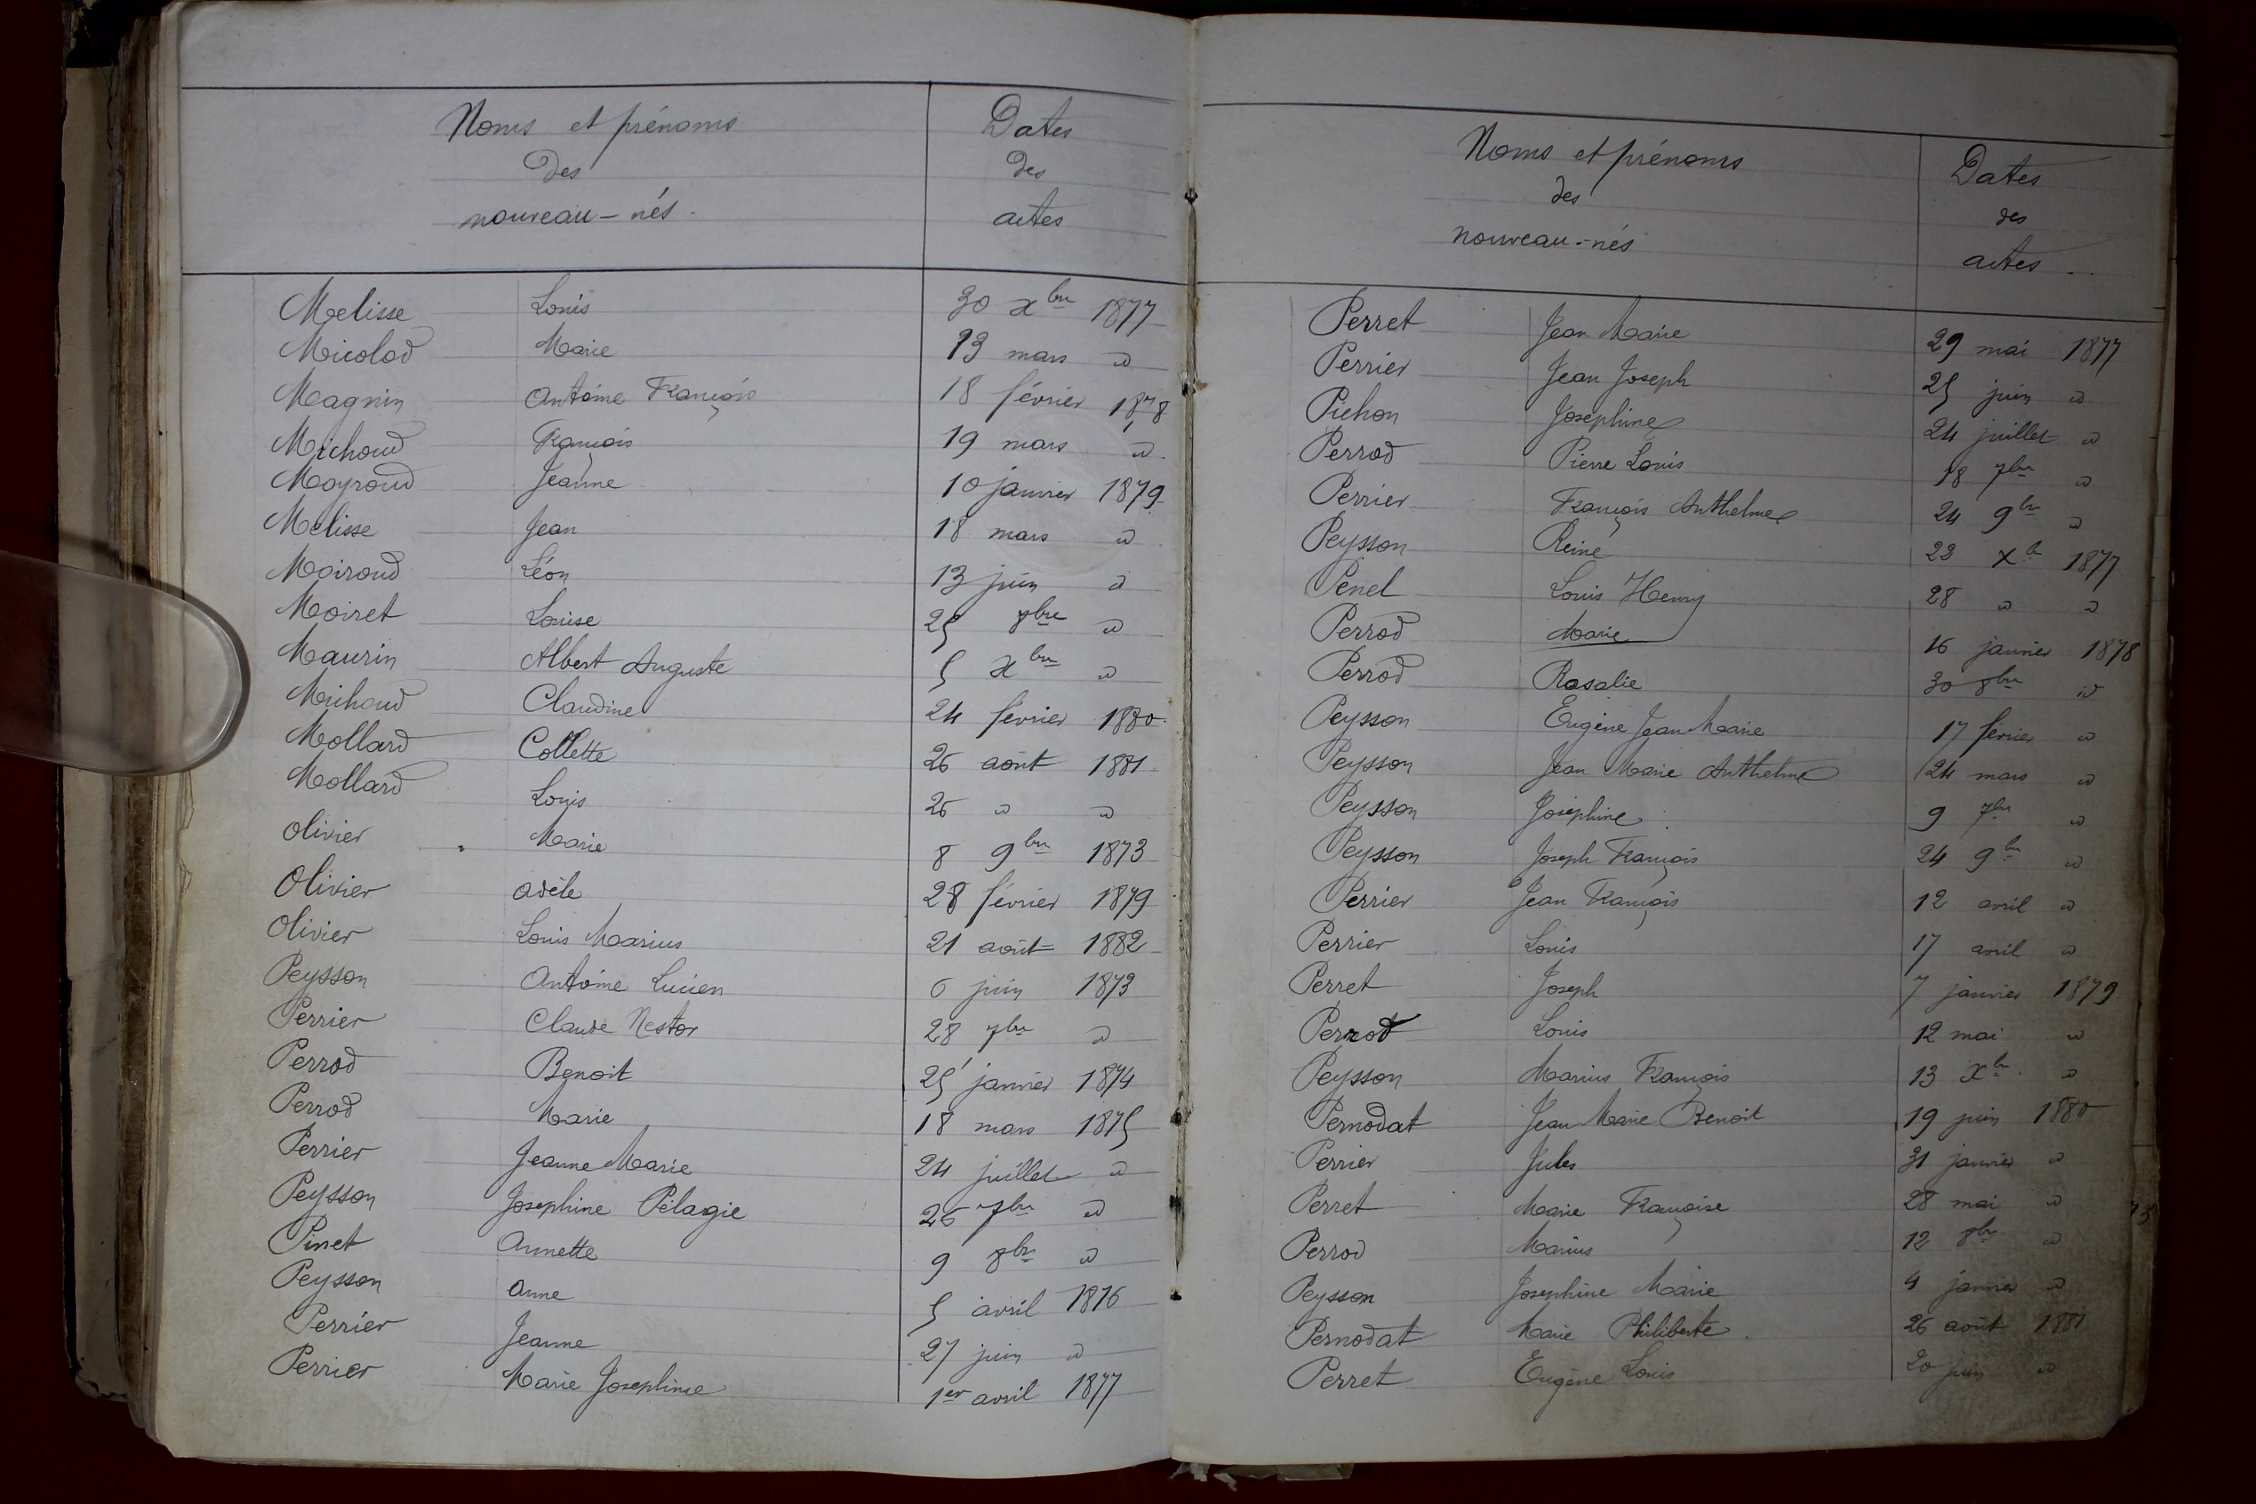 Noms et prénoms
des
nouveau-nés.
Dates
des
actes
Melisse Louis 30 xbre 1877
Micolod Marie 13 mars d
Magnin Antoine François 18 février 1878
Michoud François 19 mars d
Moyroud Jeanne 10 janvier 1879
Melisse Jean 18 mars d
Moiroud Léon 13 juin d
Moiret Louise 25 8bre d
Maurin Albert Auguste 5 xbre d
Michoud Claudine 24 février 1880
Mollard Collette 26 août 1881
Mollard Louis 26 d d
Olivier Marie 8 9bre 1873
Olivier Adèle 28 février 1879
Olivier Louis Marius 21 août 1882
Peysson Antoine Lucien 6 juin 1873
Perrier Claude Nestor 28 7bre d
Perrod Benoit 25 janvier 1874
Perrod Marie 18 mars 1875
Perrier Jeanne Marie 24 juillet d
Peysson Josephine Pélagie 26 7bre d
Pinet Annette 9 8bre d
Peysson Anne 5 avril 1876
Perrier Jeanne 27 juin d
Perrier Marie Josephine 1er avril 1877
Noms et prénoms
des
nouveau-nés
Dates
des
actes
Perret Jean Marie 29 mai 1877
Perrier Jean Joseph 25 juin d
Pichon Joséphine 24 juillet d
Perrod Pierre Louis 18 7bre d
Perrier François Anthelme 24 9bre d
Peysson Reine 23 xb 1877
Penel Louis Henry 28 d d
Perrod Marie 16 janvier 1878
Perrod Rosalie 30 8bre d
Peysson Eugène Jean Marie 17 février d
Peysson Jean Marie Anthelme 24 mars d
Peysson Joséphine 9 7bre d
Peysson Joseph François 24 9bre d
Perrier Jean François 12 avril d
Perrier Louis 17 avril d
Perret Joseph 7 janvier 1879
Perrod Louis 12 mai d
Peysson Marius François 13 xbre d
Pernodat Jean Marie Benoit 19 juin 1880
Perrier Jules 31 janvier d
Perret Marie Françoise 28 mai d
Perrod Marius 12 8bre d
Peysson Josephine Marie 4 janvier d
Pernodat Marie Philiberte 26 août 1881
Perret Eugène Louis 20 juin d